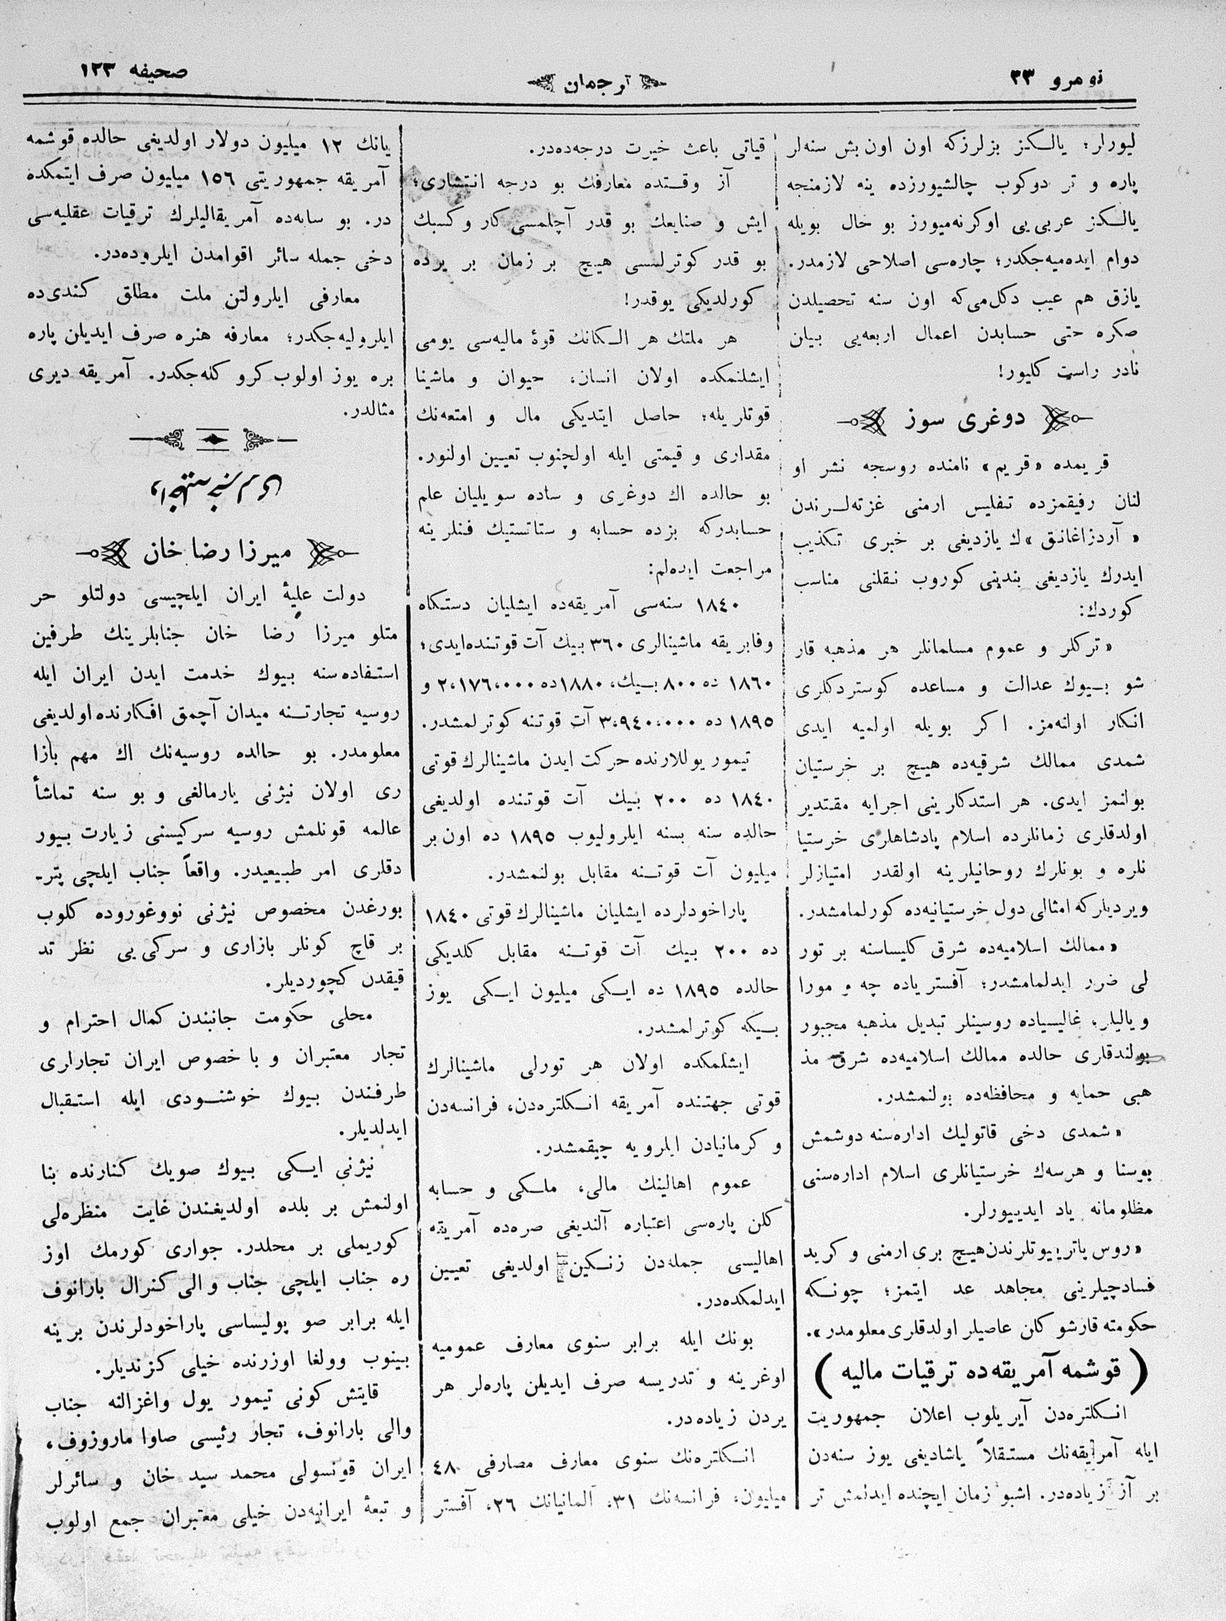 نومرو ٣٣
ترجمان
صحیفه ١٢٣
لیورلر؛ یالکز بزلرزکه اون اون بش سنه‌لر
پاره و تر دوکوب چالشیورزده ینه لازمنجه
یالکز عربی‌یی اوکرنه‌میورز بو حال بویله
دوام ایده‌میه‌جکدر؛ چاره‌سی اصلاحی لازمدر.
یازق هم عیب دکل‌می‌که اون سنه تحصیلدن
صکره حتی حسابدن اعمال اربعه‌یی بیان
نادر راست کلیور!
دوغری سوز
قریمده «قریم» نامنده روسجه نشر او
لنان رفیقمزده تفلیس ارمنی غزته‌لرندن
«آردزاغانق»ك یازدیغی بر خبری تکذیب
ایدرك یازدیغی بندینی کوروب نقلنی مناسب
کوردك:
«ترکلر و عموم مسلمانلر هر مذهبه قار
شو بیوك عدالت و مساعده کوستردکلری
انکار اولنه‌مز. اکر بویله اولمیه ایدی
شمدی ممالك شرقیه‌ده هیچ بر خرستیان
بولنمز ایدی. هر استدکارینی اجرایه مقتدیر
اولدقلری زمانلرده اسلام پادشاهلری خرستیا
نلره و بونلرك روحانیلرینه اولقدر امتیازلر
ویردیلرکه امثالی دول خرستیانیه‌ده کورلمامشدر.
«ممالك اسلامیه‌ده شرق کلیساسنه بر تور
لی ضرر ایدلمامشدر؛ آفستریاده چه و مورا
ویالیلر، غالیسیاده روسینلر تبدیل مذهبه مجبور
بولندقلری حالده ممالك اسلامیه‌ده شرق مذ
هبی حمایه و محافظه‌ده بولنمشدر.
«شمدی دخی قاتولیك اداره‌سنه دوشمش
بوسنا و هرسه‌ك خرستیانلری اسلام اداره‌سنی
مظلومانه یاد ایدییورلر.
«روس پاتریوتلرندن هیچ بری ارمنی و کرید
فسادچیلرینی مجاهد عد ایتمز؛ چونکه
حکومته قارشو کان عاصیلر اولدقلری معلومدر».
( قوشمه آمریقه‌ده ترقیات مالیه )
انکلتره‌دن آیریلوب اعلان جمهوریت
ایله آمریقه‌نك مستقلاً یاشادیغی یوز سنه‌دن
بر آز زیاده‌در. اشبو زمان ایچنده ایدلمش تر
قیاتی باعث خیرت درجه‌ده‌در.
آز وقتده معارفك بو درجه انتشاری؛
ایش و صنایعك بو قدر آچلمسی کار و کسبك
بو قدر کوترلمسی هیچ بر زمان بر یرده
کورلدیکی یوقدر!
هر ملتك هر الکانك قوهٔ مالیه‌سی یومی
ایشلنمکده اولان انسان، حیوان و ماشینا
قوتلریله؛ حاصل ایتدیکی مال و امتعه‌نك
مقداری و قیمتی ایله اولچنوب تعیین اولنور.
بو حالده اك دوغری و ساده سویلیان علم
حسابدرکه بزده حسابه و ستاتستیك فنلرینه
مراجعت ایده‌لم:
١٨٤٠ سنه‌سی آمریقه‌ده ایشلیان دستکاه
وفابریقه ماشینالری ٣٦٠ بیك آت قوتنده‌ایدی؛
١٨٦٠ ده ٨٠٠ بیك، ١٨٨٠ده ٢،١٧٦،٠٠٠ و
١٨٩٥ ده ٣،٩٤٠،٠٠٠ آت قوتنه کوترلمشدر.
تیمور یوللارنده حرکت ایدن ماشینالرك قوتی
١٨٤٠ ده ٢٠٠ بیك آت قوتنده اولدیغی
حالده سنه بسنه ایلرولیوب ١٨٩٥ ده اون بر
میلیون آت قوتنه مقابل بولنمشدر.
پاراخودلرده ایشلیان ماشینالرك قوتی ١٨٤٠
ده ٢٠٠ بیك آت قوتنه مقابل کلدیکی
حالده ١٨٩٥ ده ایکی میلیون ایکی یوز
بیکه کوترلمشدر.
ایشلمکده اولان هر تورلی ماشینالرك
قوتی جهتنده آمریقه انکلتره‌دن، فرانسه‌دن
و کرمانیادن ایلرویه چیقمشدر.
عموم اهالینك مالی، ملکی و حسابه
کلن پاره‌سی اعتباره آلندیغی صره‌ده آمریقه
اهالیسی جمله‌دن زنکین اولدیغی تعیین
ایدلمکده‌در.
بونك ایله برابر سنوی معارف عمومیه
اوغرینه و تدریسه صرف ایدیلن پاره‌لر هر
یردن زیاده‌در.
انکلتره‌نك سنوی معارف مصارفی ٤٨
میلیون، فرانسه‌نك ٣١، آلمانیانك ٢٦، آفستر
یانك ١٢ میلیون دولار اولدیغی حالده قوشمه
آمریقه جمهوریتی ١٥٦ میلیون صرف ایتمکده
در. بو سایه‌ده آمریقالیلرك ترقیات عقلیه‌سی
دخی جمله سائر اقوامدن ایلروده‌در.
معارفی ایلرولتن ملت مطلق کندی‌ده
ایلرولیه‌جکدر؛ معارفه هنره صرف ایدیلن پاره
بره یوز اولوب کرو کله‌جکدر. آمریقه دیری
مثالدر.
میرزا رضا خان
دولت علیهٔ ایران ایلچیسی دولتلو حر
متلو میرزا رضا خان جنابلرینك طرفین
استفاده‌سنه بیوك خدمت ایدن ایران ایله
روسیه تجارتنه میدان آچمق افکارنده اولدیغی
معلومدر. بو حالده روسیه‌نك اك مهم بازا
ری اولان نیژنی یارمالغی و بو سنه تماشأ
عالمه قونلمش روسیه سرکیسنی زیارت بیور
دقلری امر طبیعیدر. واقعاً جناب ایلچی پتر-
بورغدن مخصوص نیژنی نووغوروده کلوب
بر قاچ کونلر بازاری و سرکی‌یی نظر تد
قیقدن کچوردیلر.
محلی حکومت جانبندن کمال احترام و
تجار معتبران و با خصوص ایران تجارلری
طرفندن بیوك خوشنودی ایله استقبال
ایدلدیلر.
نیژنی ایکی بیوك صویك کنارنده بنا
اولنمش بر بلده اولدیغندن غایت منظره‌لی
کوریملی بر محلدر. جواری کورمك اوز
ره جناب ایلچی جناب والی کنرال بارانوف
ایله برابر صو پولیساسی پاراخودلرندن برینه
بینوب وولغا اوزرنده خیلی کزندیلر.
قایتش کونی تیمور یول واغزالنه جناب
والی بارانوف، تجار رئیسی صاوا ماروزوف،
ایران قونسولی محمد سید خان و سائرلر
و تبعهٔ ایرانیه‌دن خیلی معتبران جمع اولوب